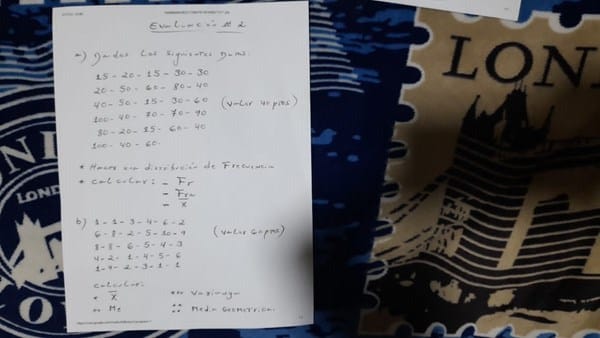 Evaluación # 2
a) Dados Los siguientes Datos:
15 - 20 - 15 - 30 - 30
20 - 50 - 60 - 80 - 40
40 - 50 - 15 - 30 - 60 (valor 40 ptos)
100 - 40 - 70 - 70 - 90
80 - 20 - 15 - 60 - 40
100 - 40 - 60.
* Hacer una distribución de Frecuencia
* Calcular: - Fr
- Fra
- X̄
b) 1 - 1 - 3 - 4 - 6 - 2
6 - 8 - 2 - 5 - 10 - 9 (valor 60 ptos)
8 - 8 - 6 - 5 - 4 - 3
4 - 2 - 1 - 4 - 5 - 6
1 - 9 - 2 - 3 - 1 - 1
Calcular:
* X̄
** Me
Media Geometrica.
LOND
LOND